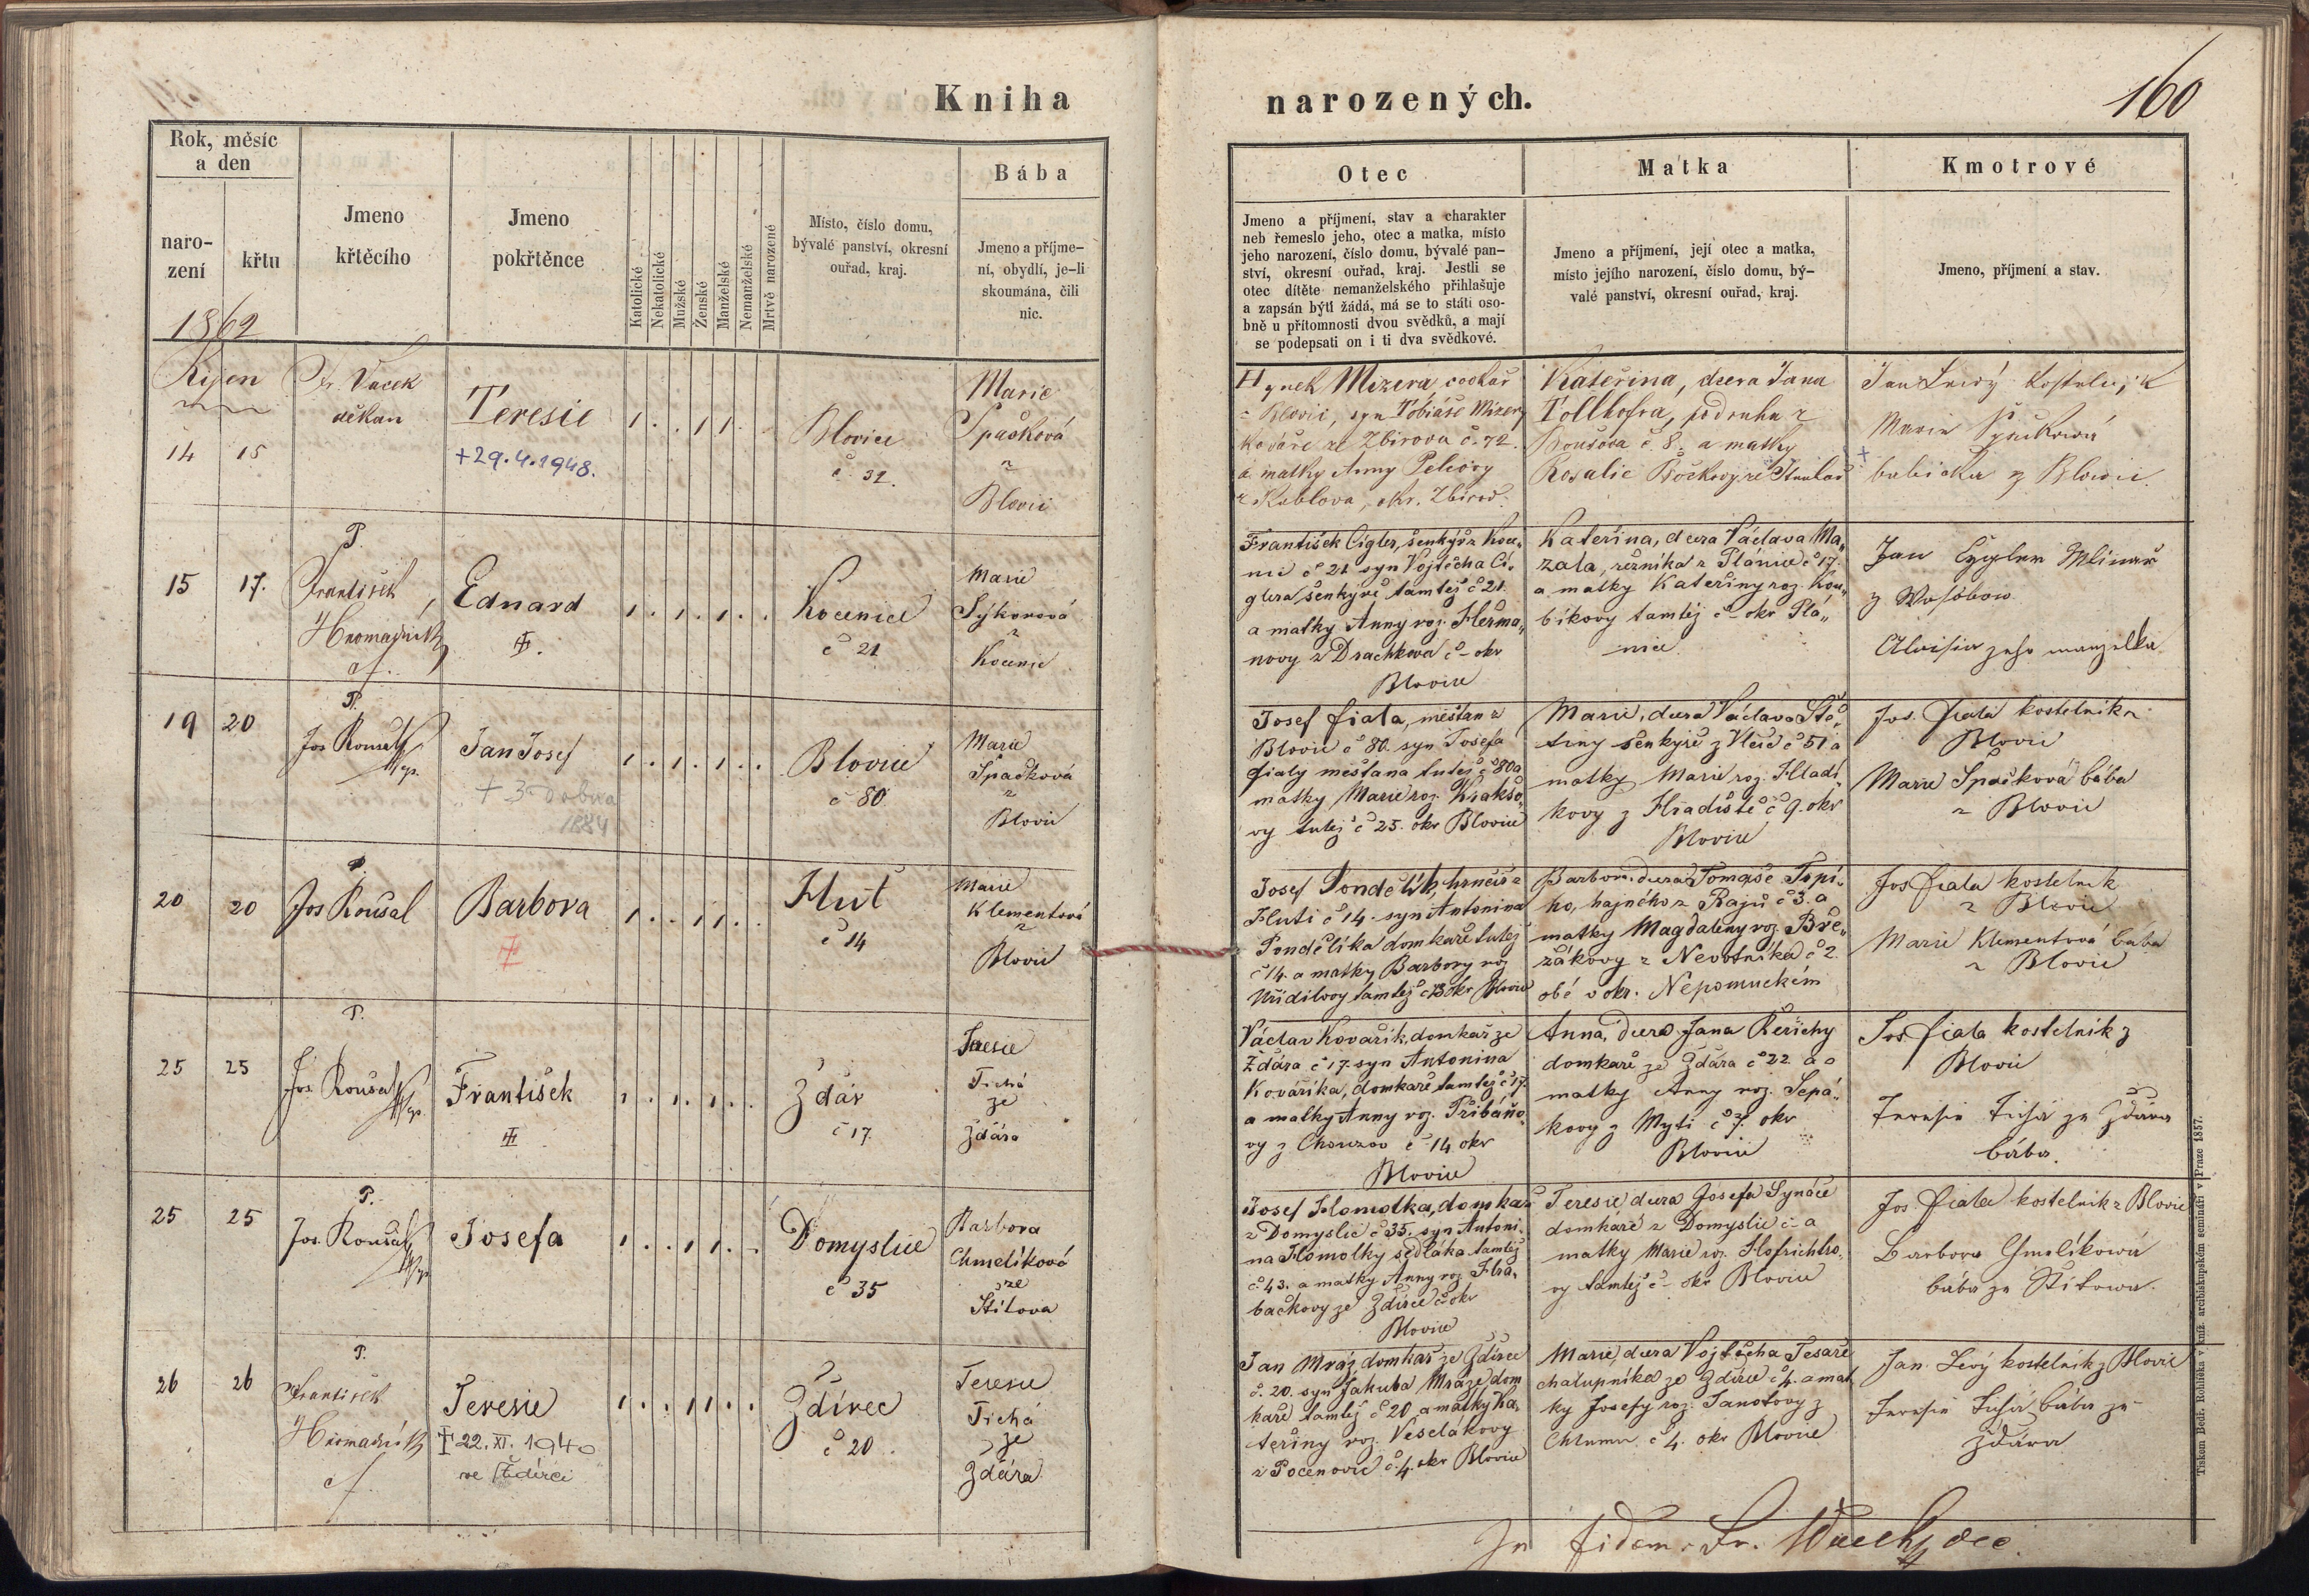 160
Kniha narozených.
Rok, měsíc
a den
naro-
zení
křtu
Jmeno
křtěcího
Jmeno
pokřtěnce
Katolické
Nekatolické
Mužské
Ženské
Manželské
Nemanželské
Mrtvě narozené
Místo, číslo domu,
bývalé panství, okresní
ouřad, kraj.
Bába
Jmeno a příjme-
ní, obydlí, je-li
skoumána, čili
nic.
Otec
Jmeno a příjmení, stav a charakter
neb řemeslo jeho, otec a matka, místo
jeho narození, číslo domu, bývalé pan-
ství, okresní ouřad, kraj. Jestli se
otec dítěte nemanželského přihlašuje
a zapsán býti žádá, má se to státi oso-
bně u přítomnosti dvou svědků, a mají
se podepsati on i ti dva svědkové.
Matka
Jmeno a příjmení, její otec a matka,
místo jejího narození, číslo domu, bý-
valé panství, okresní ouřad, kraj.
Kmotrové
Jmeno, příjmení a stav.
1862
Říjen
14 15
Fr. Vacek
děkan
Teresie
+29.4.1948.
1 . . 1 1 .
Blovice
č. 32.
Marie
Špačková
z
Blovic
Hynek Mizera, cvokař
z Blovic, syn Tobiáše Mizery
kováře ze Zbirova č. 72.
a matky Anny
z Kublova, okr. Zbirov.
Kateřina, dcera Jana
Tollhofra, podruha z
č. 8. a matky
Rosalie
Jan Lewý kostelnjk
Marie Špačkowá
babička z Blowic.
15 17.
P.
František
Hromadník
Eduard
1 . 1 . 1 . .
Kocenice
č 21
Marie
Sýkorová
z
Kocenic
František Cígler, šenkýř z Koce„
nic č 21 syn Vojtěcha Cí„
glera šenkýře tamtéž č 21.
a matky Anny roz. Heřma„
novy z Drachkova č - okr
Blovice
Kateřina, dcera Václava Ma„
zala, řezníka z Plánice č 17.
a matky Kateřiny roz. Kou„
bíkovy tamtéj č - okr Plá„
nice
Jan Cygler Mlinař
z
Aloisia jeho manželka
19 20
P.
Jos Rousal
Jan Josef
+ 3 dubna
1884
1 . 1 . 1 . .
Blovice
č 80
Marie
Špačková
z
Blovic
Josef Fiala, měšťan z
Blovic č 80. syn Josefa
Fialy měšťana tutéj č 80 a
matky Marie roz.
vy tutéj č 25. okr Blovice
Marie, dcera Václava Ště„
tiny šenkýře z Vlčic č 51 a
matky Marie roz. Hladí„
kovy z Hradiště č 9. okr
Blovice
Jos. Fiala kostelník z
Blovic
Marie Špačková bába
z Blovic
20 20
P.
Jos Rousal
Barbora
1 . . 1 1 . .
Huť
č 14
Marie
Klementová
z
Blovic
Josef Pondělík, hrnčíř z
Huti č 14. syn Antonína
Pondělíka domkaře tutéj
č 14. a matky Barbory roz
tamtéž č 13 okr Blovice
Barbora, dcera Tomáše Topí„
ho, hajného z Rajů č 3. a
matky Magdaleny roz. Bře„
zákovy z Nevotníka č 2.
obé v okr. Nepomuckém
Jos Fiala kostelník
z Blovic
Marie Klementová bába
z Blovic
25 25
P.
Jos. Rousal
František
1 . 1 . 1 . .
Ždár
č 17.
Teresie
Tichá
ze
Ždára
Václav Kovařík, domkař ze
Ždára č 17. syn Antonína
Kovaříka, domkaře tamtéž č 17.
a matky Anny roz. Přibáňo„
vy z Chouzov č 14 okr
Blovice
Anna, dcera Jana Řeřichy
domkaře ze Ždára č 22. a
matky Anny roz. Šepá„
kovy z Mytí č 7. okr
Blovice
Jos Fiala kostelník z
Blovic
Teresie Tichá ze Ždára
bába.
25 25
P.
Jos. Rousal
Josefa
1 . . 1 1 . .
Domyslice
č 35
Barbora
Chmelíková
ze
Štítova
Josef Homolka, domkař
z Domyslic č 35. syn Antoní„
na Homolky sedláka tamtéž
č 43. a matky Anny roz. Hra„
bačkovy ze Ždírce č okr
Blovice
Teresie, dcera Josefa Synáče
domkáře z Domyslic č - a
matky Marie roz. Hofrichtro„
vy tamtéj č - okr Blovice
Jos Fiala kostelník z Blovic
Barbora Chmelíkowá
bába ze Štítowa.
26 26
P.
František
Hromadník
Teresie
22. XI. 1940
ve Ždírci
1 . . 1 1 . .
Ždírec
č 20
Teresie
Tichá
ze
Ždára
Jan Mráz domkář ze Ždírce
č. 20. syn Jakuba Mráze dom
kaře tamtéj č 20 a matky Ka„
teřiny roz. Veselákovy
z Pocenovic č. 4. okr Blovice
Marie, dcera Vojtěcha Tesaře
chalupníka ze Ždírce č 4. a mat
ky Josefy roz. Janotovy z
Chlumu č 4. okr Blovice
Jan Levý kostelník z Blovic
Teresie Tichá bába ze
Ždára
In fidem. Fr. Waček dec.
Tiskem Bedř. Rohlíčka v kníž. arcibiskupském semináři v Praze 1857.